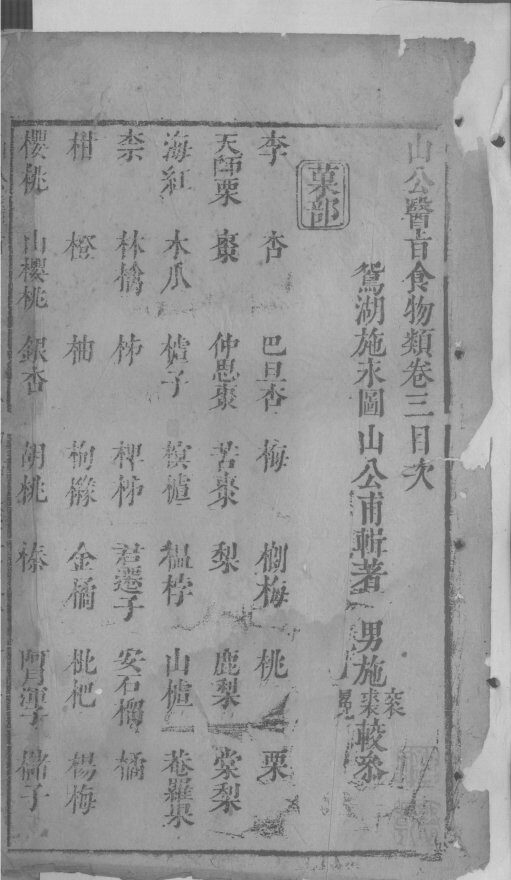 山公醫旨食物類卷三目次
鴛湖施永圖山公甫輯著 男施 較叅
菓部
李 杏 巴旦杏 梅 櫥梅 桃 栗
天師栗 棗 仲思棗 苦棗 梨 鹿梨 棠梨
海紅 木瓜 樝子 榠樝 榲桲 山樝 菴羅果
柰 林檎 柹 椑柹 君遷子 安石榴 橘
柑 橙 柚 枸櫞 金橘 枇杷 楊梅
櫻桃 山櫻桃 銀杏 胡桃 榛 阿月渾子 櫧子